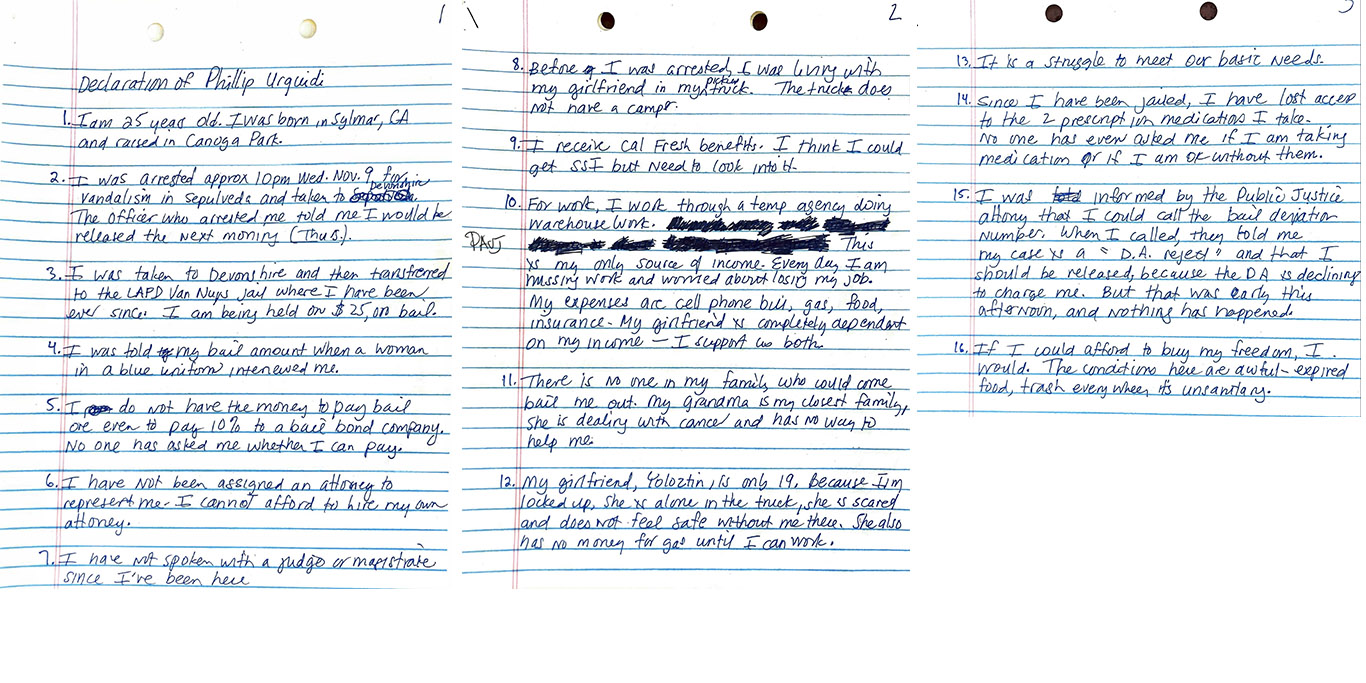 1
Declaration of Phillip Urquidi
1. I am 25 years old. I was born in Sylmar, CA
and raised in Canoga Park.
2. I was arrested approx 10pm Wed. Nov. 9 for
Devonshire
vandalism in Sepulveda and taken to
The officer who arrested me told me I would be
released the next morning (Thurs.).
3. I was taken to Devonshire and then transferred
to the LAPD Van Nuys jail where I have been
ever since. I am being held on $25, on bail.
4. I was told my bail amount when a woman
in a blue uniform interviewed me.
5. I do not have the money to pay bail
ore even to pay 10% to a bail bond company.
No one has asked me whether I can pay.
6. I have not been assigned an attorney to
represent me. I cannot afford to hire my own
attorney.
7. I have not spoken with a judge or magistrate
since I've been here
2
8. Before I was arrested, I was living with
pickup
my girlfriend in my truck. The truck does
not have a camper.
9. I receive Cal Fresh benefits. I think I could
get SSI but need to look into it.
10. For work, I work through a temp agency doing
warehouse work.
This
is my only source of income. Every day I am
missing work and worried about losing my job.
My expenses are cell phone bill, gas, food,
insurance - My girlfriend is completely dependant
on my income - I support us both.
11. There is no one in my family who could come
bail me out. My grandma is my closest family,
she is dealing with cancer and has no way to
help me.
12. My girlfriend, Yoloztin, is only 19. Because I'm
locked up, she is alone in the truck, she is scared
and does not feel safe without me there. She also
has no money for gas until I can work.
3
13. It is a struggle to meet our basic needs.
14. Since I have been jailed, I have lost access
to the 2 prescription medications I take.
No one has even asked me if I am taking
medication or if I am OK without them.
15. I was informed by the Public Justice
attorny that I could call the bail deviation
number. When I called, they told me
my case is a "D.A. reject" and that I
should be released, because the DA is declining
to charge me. But that was early this
afternoon, and nothing has happened.
16. If I could afford to buy my freedom, I
would. The conditions here are awful - expired
food, trash everywhere, it's unsanitary.